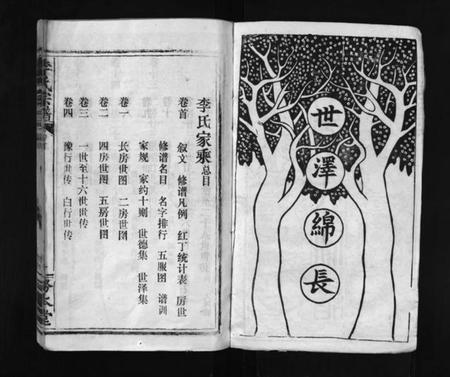 世
澤
綿
長
李氏家乘总目
卷首 叙文 修谱凡例 红丁统计表 房世
修谱名目 名字排行 五服图 谱训
家规 家约十则 世德集 世泽集
卷一 长房世图 二房世图
卷二 四房世图 五房世图
卷三 一世至十六世世传
卷四 豫行世传 白行世传